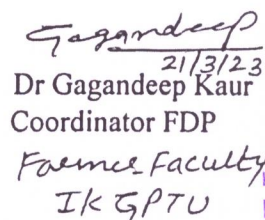 Gagandeep
21/3/23
Dr Gagandeep Kaur
Coordinator FDP
Former Faculty
IKGPTU